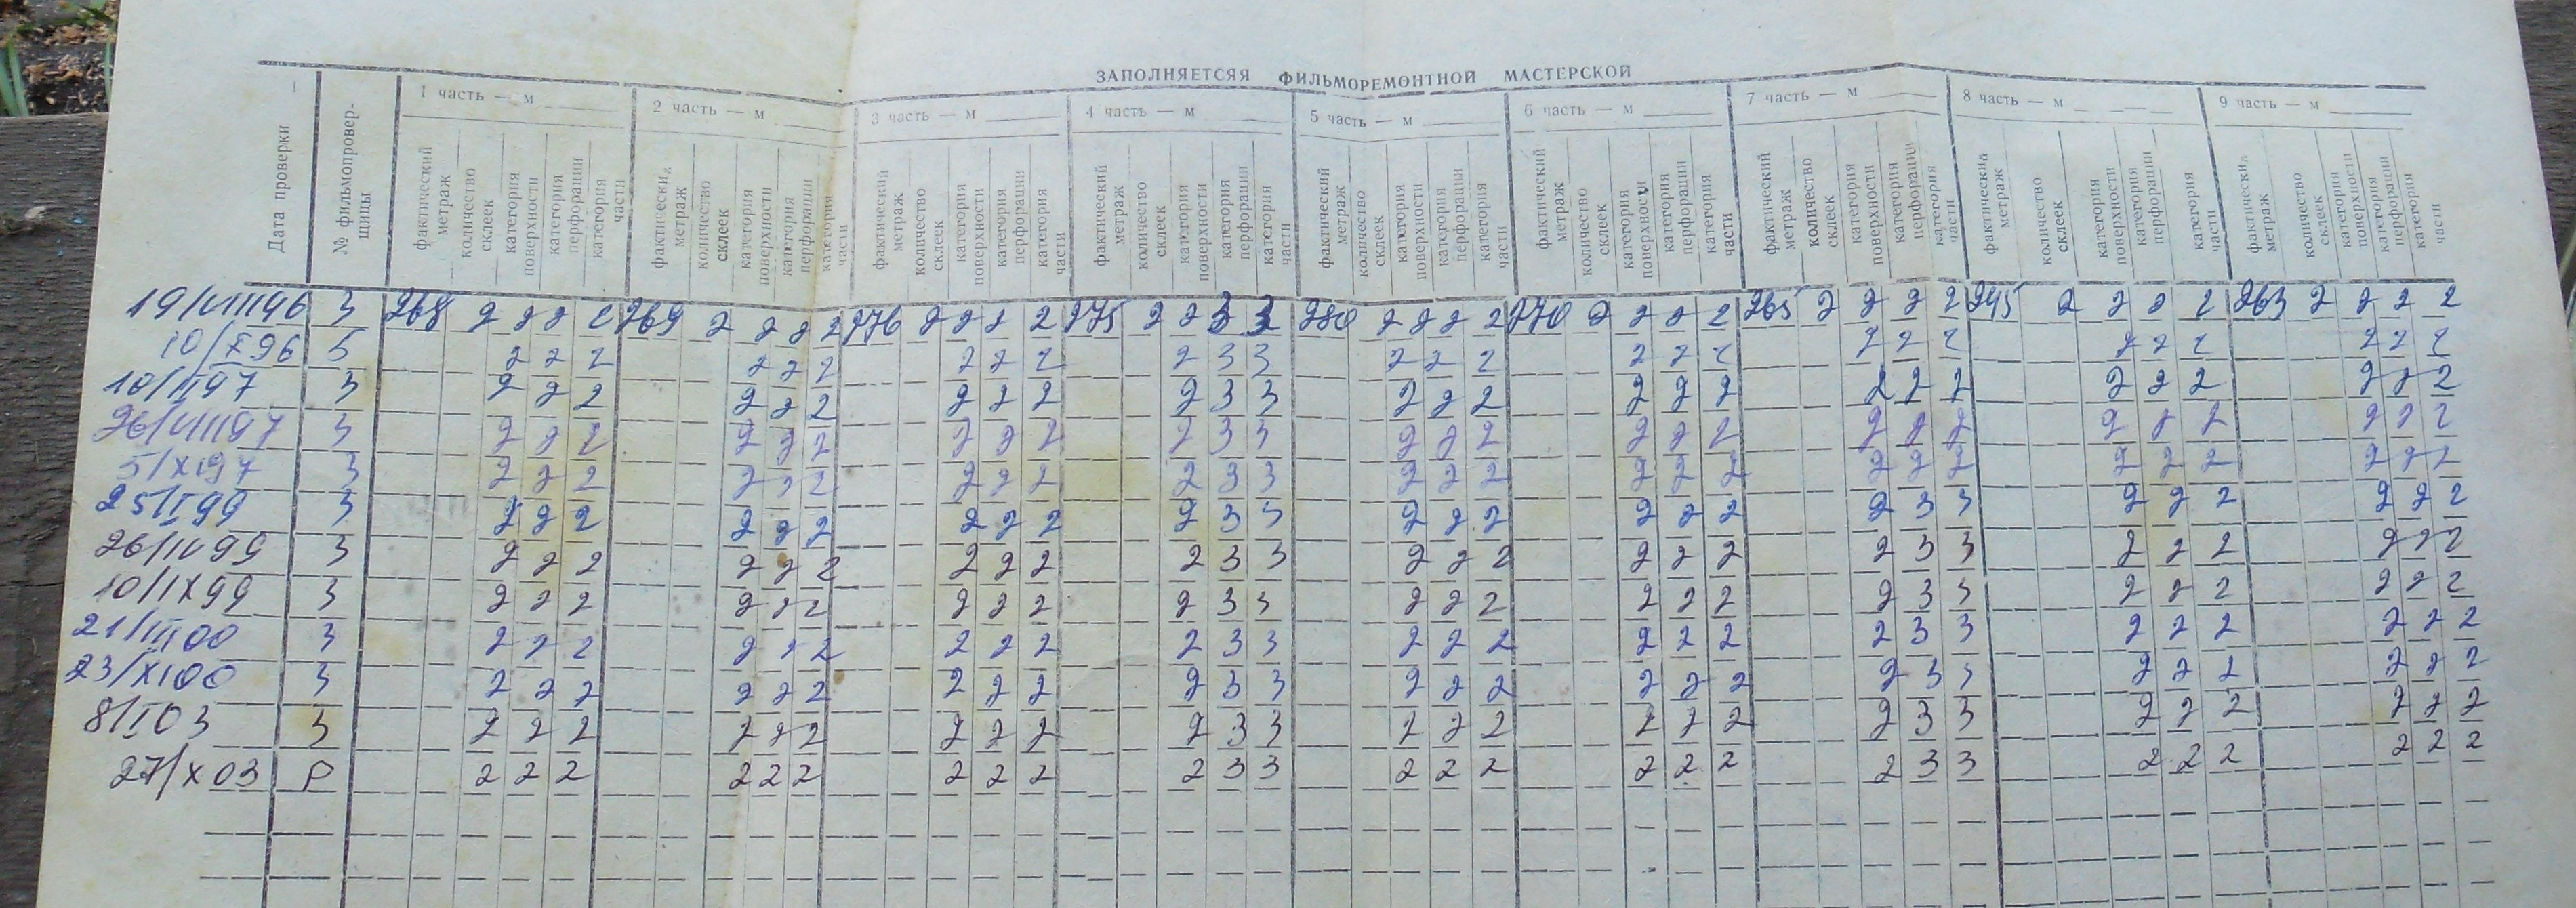 ЗАПОЛНЯЕТСЯЯ ФИЛЬМОРЕМОНТНОЙ МАСТЕРСКОЙ
1 часть — м 2 часть — м 3 часть — м 4 часть — м 5 часть — м 6 часть — м 7 часть — м 8 часть — м 9 часть — м
Дата проверки № фильмопровер-щицы фактический метраж количество склеек категория поверхности категория перфорации категория части фактический метраж количество склеек категория поверхности категория перфорации категория части фактический метраж количество склеек категория поверхности категория перфорации категория части фактический метраж количество склеек категория поверхности категория перфорации категория части фактический метраж количество склеек категория поверхности категория перфорации категория части фактический метраж количество склеек категория поверхности категория перфорации категория части фактический метраж количество склеек категория поверхности категория перфорации категория части фактический метраж количество склеек категория поверхности категория перфорации категория части фактический метраж количество склеек категория поверхности категория перфорации категория части
19/VIII96 3 268 2 2 2 2 269 2 2 2 2 276 2 2 2 2 275 2 2 3 3 280 2 2 2 2 270 2 2 2 2 265 2 2 2 2 245 2 2 2 2 263 2 2 2 2
10/X96 5 2 2 2 2 2 2 2 2 2 2 3 3 2 2 2 2 2 2 2 2 2 2 2 2 2 2 2
10/II97 3 2 2 2 2 2 2 2 2 2 2 3 3 2 2 2 2 2 2 2 2 2 2 2 2 2 2 2
26/VIII97 3 2 2 2 2 2 2 2 2 2 2 3 3 2 2 2 2 2 2 2 2 2 2 2 2 2 2 2
5/XI97 3 2 2 2 2 2 2 2 2 2 2 3 3 2 2 2 2 2 2 2 2 2 2 2 2 2 2 2
25/I99 3 2 2 2 2 2 2 2 2 2 2 3 3 2 2 2 2 2 2 2 3 3 2 2 2 2 2 2
26/IV99 3 2 2 2 2 2 2 2 2 2 2 3 3 2 2 2 2 2 2 2 3 3 2 2 2 2 2 2
10/IX99 3 2 2 2 2 2 2 2 2 2 2 3 3 2 2 2 2 2 2 2 3 3 2 2 2 2 2 2
21/III00 3 2 2 2 2 2 2 2 2 2 2 3 3 2 2 2 2 2 2 2 3 3 2 2 2 2 2 2
23/XI00 3 2 2 2 2 2 2 2 2 2 2 3 3 2 2 2 2 2 2 2 3 3 2 2 2 2 2 2
8/I03 3 2 2 2 2 2 2 2 2 2 2 3 3 2 2 2 2 2 2 2 3 3 2 2 2 2 2 2
27/X03 Р 2 2 2 2 2 2 2 2 2 2 3 3 2 2 2 2 2 2 2 3 3 2 2 2 2 2 2